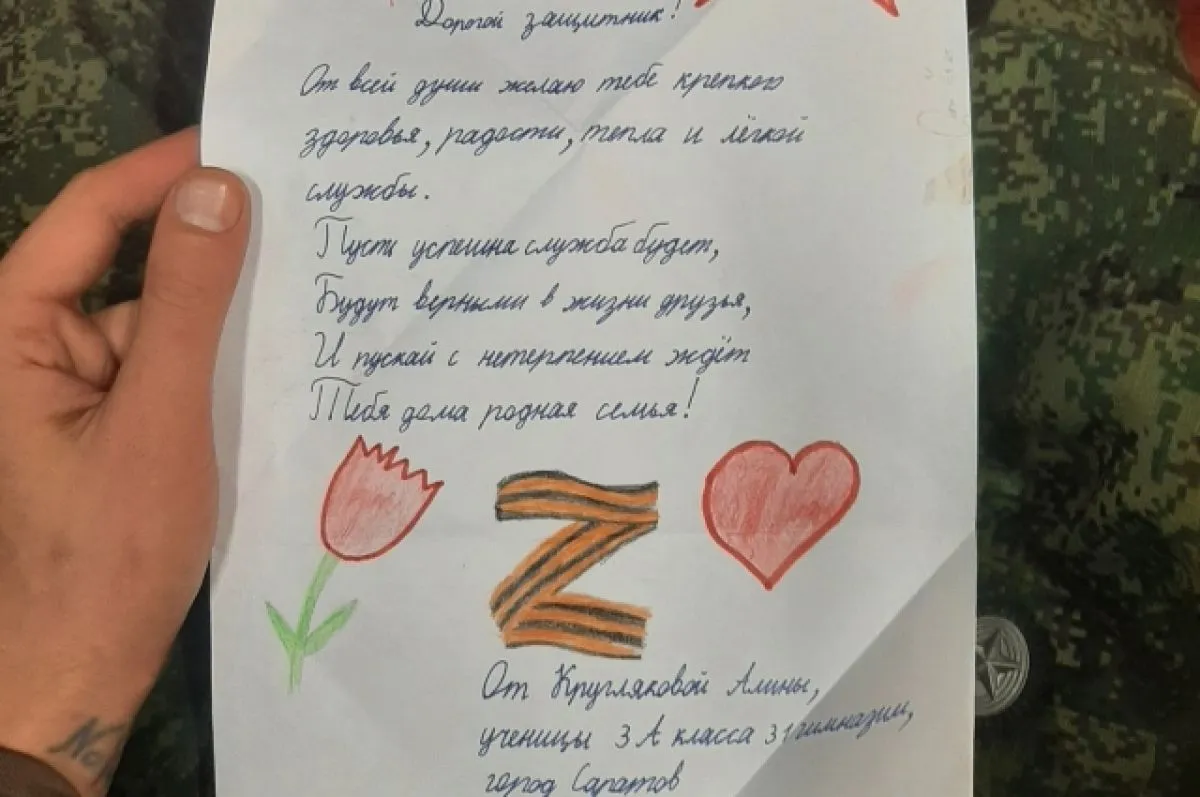 Дорогой защитник!
От всей души желаю тебе крепкого
здоровья, радости, тепла и лёгкой
службы.
Пусть успешна служба будет,
Будут верными в жизни друзья,
И пускай с нетерпением ждёт
Тебя дома родная семья!
Z
От Кругляковой Алины,
ученицы 3 А класса 31 гимназии,
город Саратов